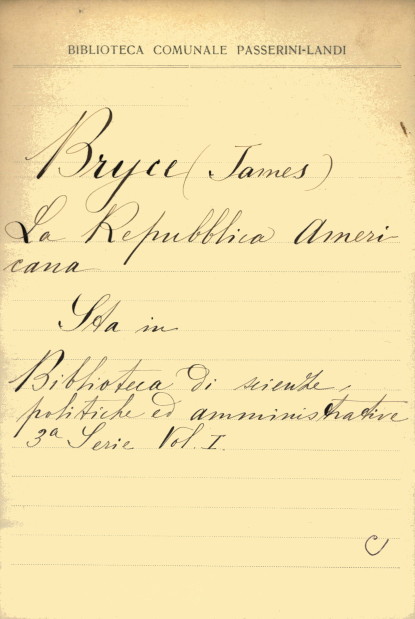 BIBLIOTECA COMUNALE PASSERINI-LANDI
Bryce (James)
La Repubblica Ameri
cana
Sta in
Biblioteca di scienze,
politiche ed amministrative
3a Serie Vol. I.
C